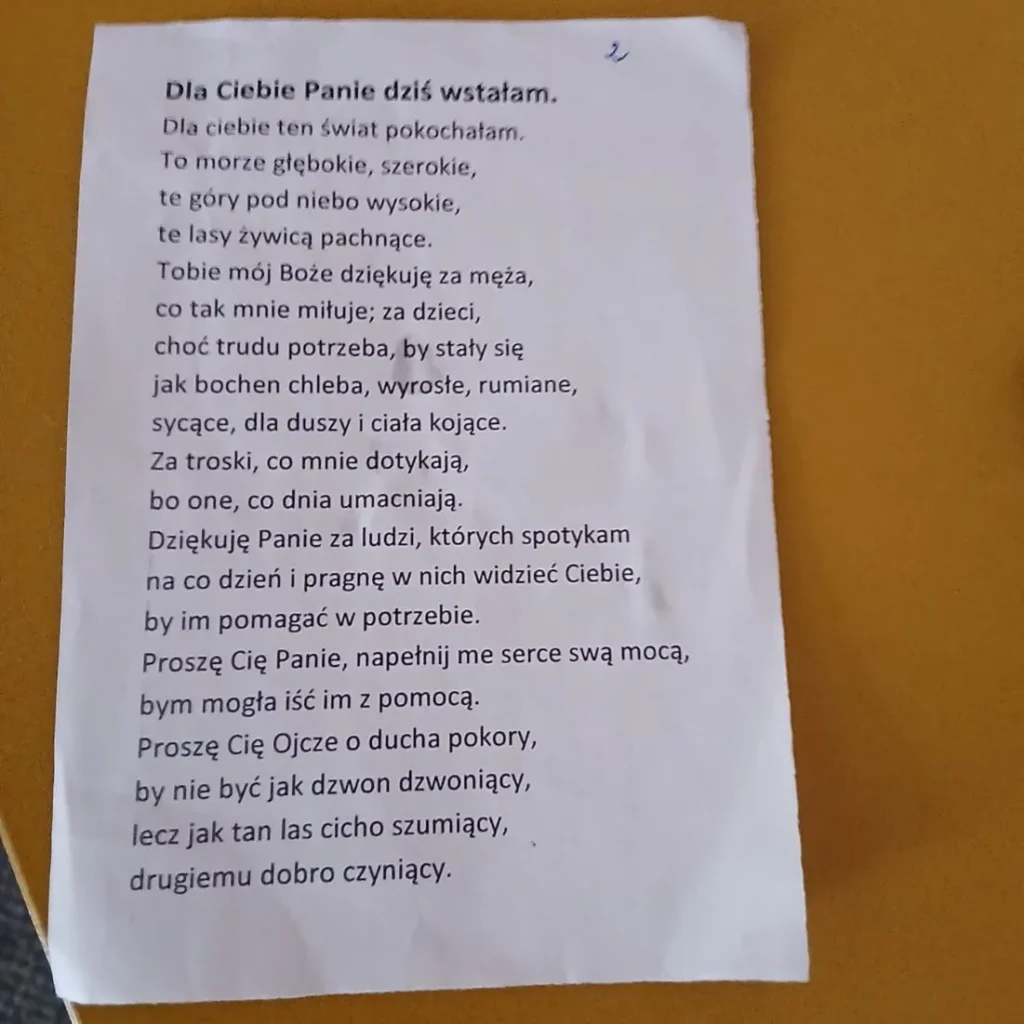 2
Dla Ciebie Panie dziś wstałam.
Dla ciebie ten świat pokochałam.
To morze głębokie, szerokie,
te góry pod niebo wysokie,
te lasy żywicą pachnące.
Tobie mój Boże dziękuję za męża,
co tak mnie miłuje; za dzieci,
choć trudu potrzeba, by stały się
jak bochen chleba, wyrosłe, rumiane,
sycące, dla duszy i ciała kojące.
Za troski, co mnie dotykają,
bo one, co dnia umacniają.
Dziękuję Panie za ludzi, których spotykam
na co dzień i pragnę w nich widzieć Ciebie,
by im pomagać w potrzebie.
Proszę Cię Panie, napełnij me serce swą mocą,
bym mogła iść im z pomocą.
Proszę Cię Ojcze o ducha pokory,
by nie być jak dzwon dzwoniący,
lecz jak tan las cicho szumiący,
drugiemu dobro czyniący.